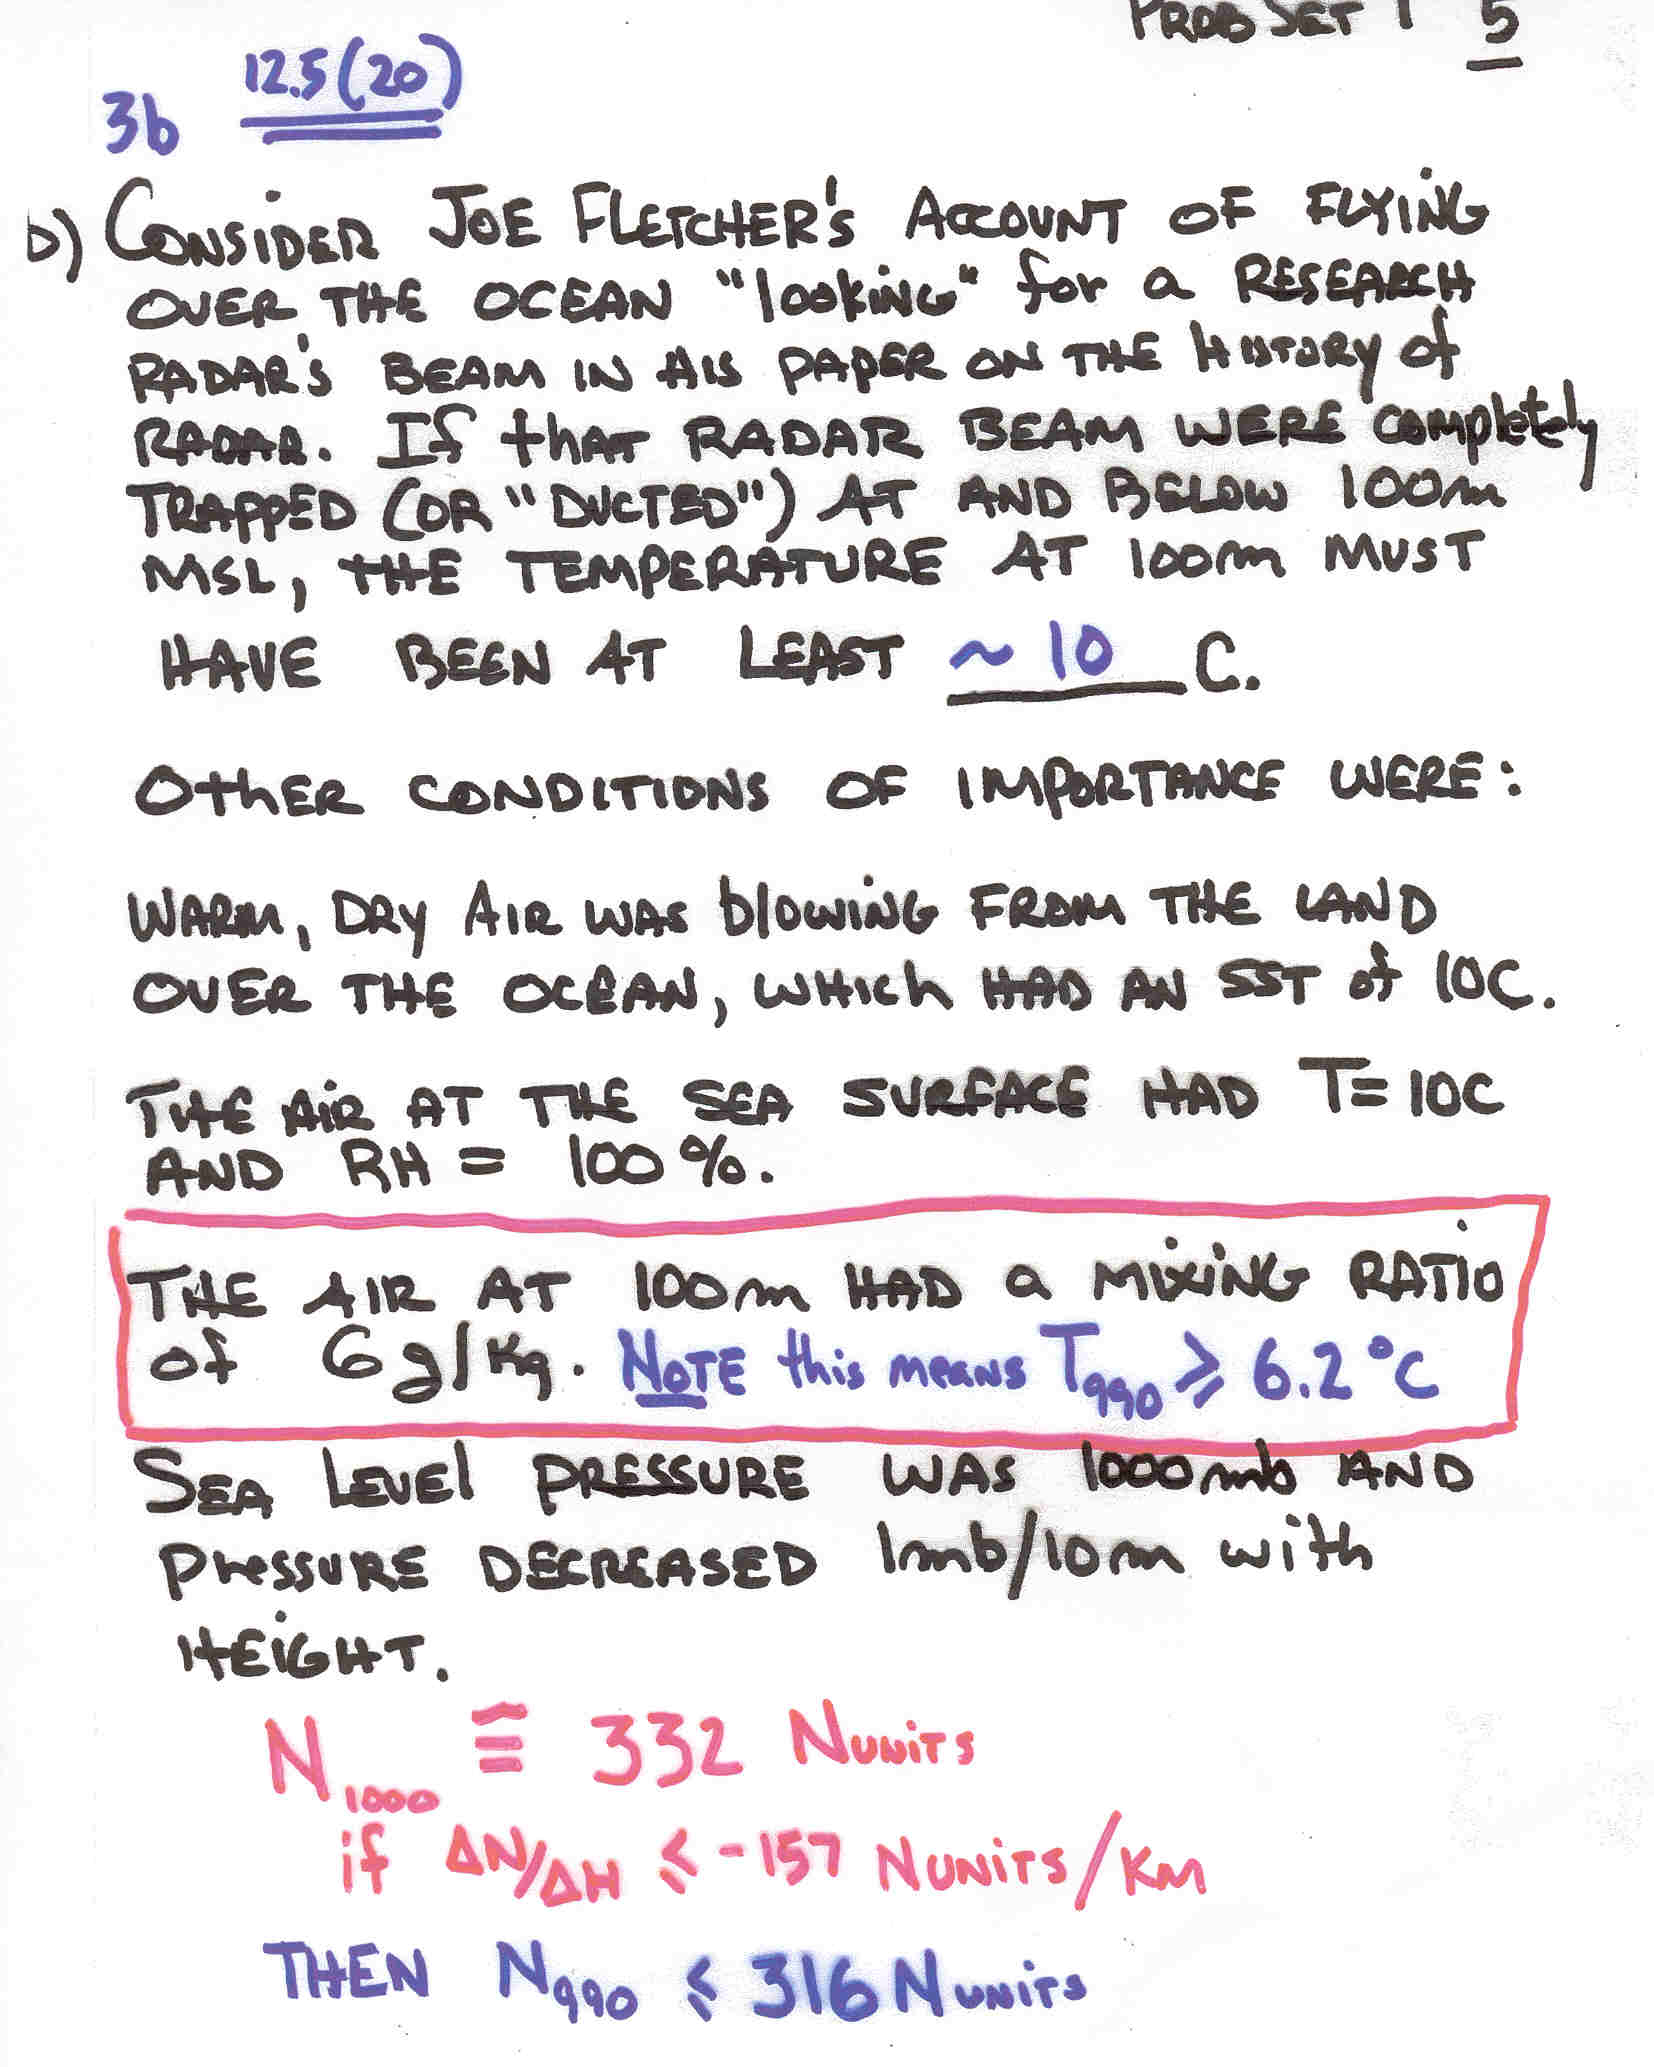 PROB SET 1 5
3b 12.5(20)
D) CONSIDER JOE FLETCHER'S ACCOUNT OF FLYING
OVER THE OCEAN "looking" for a RESEARCH
RADAR'S BEAM IN HIS PAPER ON THE HISTORY of
RADAR. If that RADAR BEAM WERE completely
TRAPPED (OR "DUCTED") AT AND BELOW 100m
MSL, THE TEMPERATURE AT 100m MUST
HAVE BEEN AT LEAST ~ 10 C.
OTHER CONDITIONS OF IMPORTANCE WERE:
WARM, DRY AIR WAS blowing FROM THE LAND
OVER THE OCEAN, WHICH HAD AN SST of 10C.
THE AIR AT THE SEA SURFACE HAD T=10C
AND RH = 100%.
THE AIR AT 100m HAD a MIXING RATIO
of 6g/Kg. NOTE this means T990 ≥ 6.2°C
SEA LEVEL PRESSURE WAS 1000mb AND
PRESSURE DECREASED 1mb/10m with
HEIGHT.
N1000 ≅ 332 NUNITS
if ΔN/ΔH ≤ -157 NUNITS/KM
THEN N990 ≤ 316 NUNITS